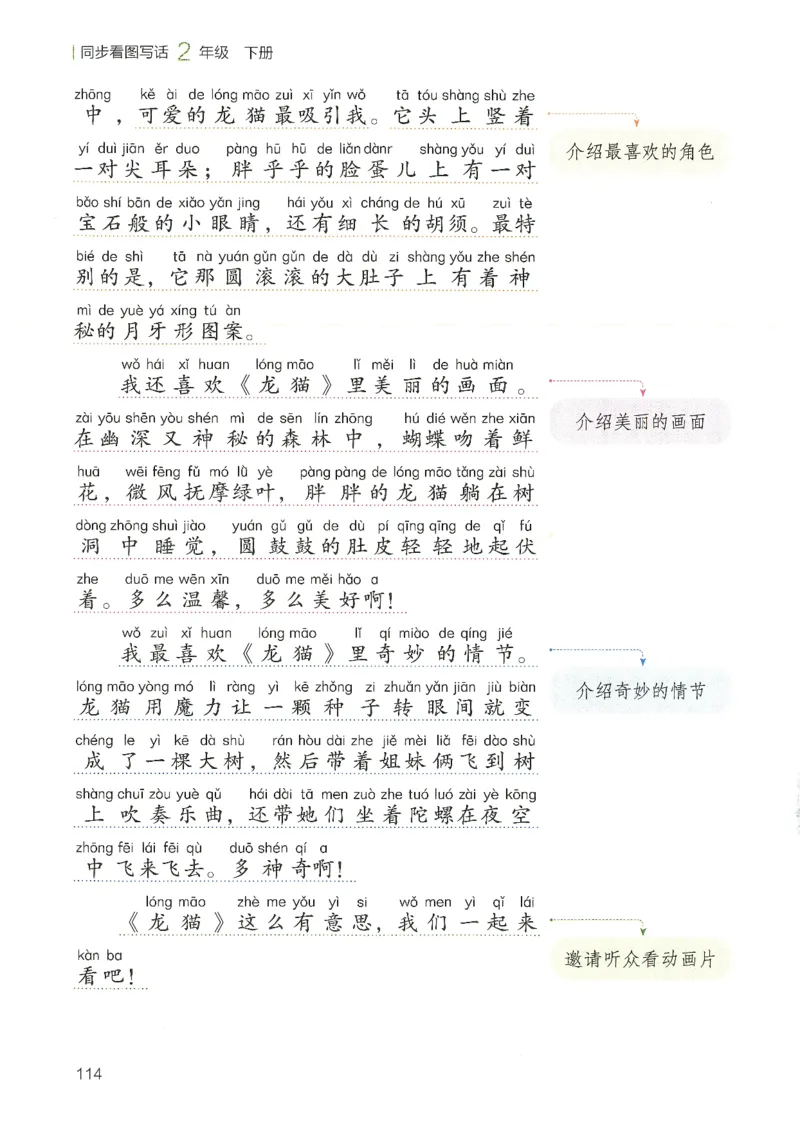 同步看图写话 2 年级 下册
zhōng kě ài de lóng māo zuì xī yǐn wǒ tā tóu shàng shù zhe
中，可爱的龙猫最吸引我。它头上竖着
介绍最喜欢的角色
yí duì jiān ěr duo pàng hū hū de liǎn dànr shàng yǒu yí duì
一对尖耳朵；胖乎乎的脸蛋儿上有一对
bǎo shí bān de xiǎo yǎn jing hái yǒu xì cháng de hú xū zuì tè
宝石般的小眼睛，还有细长的胡须。最特
bié de shì tā nà yuán gǔn gǔn de dà dù zi shàng yǒu zhe shén
别的是，它那圆滚滚的大肚子上有着神
mì de yuè yá xíng tú àn
秘的月牙形图案。
wǒ hái xǐ huan lóng māo lǐ měi lì de huà miàn
我还喜欢《龙猫》里美丽的画面。
介绍美丽的画面
zài yōu shēn yòu shén mì de sēn lín zhōng hú dié wěn zhe xiān
在幽深又神秘的森林中，蝴蝶吻着鲜
huā wēi fēng fǔ mó lǜ yè pàng pàng de lóng māo tǎng zài shù
花，微风抚摩绿叶，胖胖的龙猫躺在树
dòng zhōng shuì jiào yuán gǔ gǔ de dù pí qīng qīng de qǐ fú
洞中睡觉，圆鼓鼓的肚皮轻轻地起伏
zhe duō me wēn xīn duō me měi hǎo a
着。多么温馨，多么美好啊！
wǒ zuì xǐ huan lóng māo lǐ qí miào de qíng jié
我最喜欢《龙猫》里奇妙的情节。
介绍奇妙的情节
lóng māo yòng mó lì ràng yì kē zhǒng zi zhuǎn yǎn jiān jiù biàn
龙猫用魔力让一颗种子转眼间就变
chéng le yì kē dà shù rán hòu dài zhe jiě mèi liǎ fēi dào shù
成了一棵大树，然后带着姐妹俩飞到树
shàng chuī zòu yuè qǔ hái dài tā men zuò zhe tuó luó zài yè kōng
上吹奏乐曲，还带她们坐着陀螺在夜空
zhōng fēi lái fēi qù duō shén qí a
中飞来飞去。多神奇啊！
lóng māo zhè me yǒu yì si wǒ men yì qǐ lái
《龙猫》这么有意思，我们一起来
邀请听众看动画片
kàn ba
看吧！
114